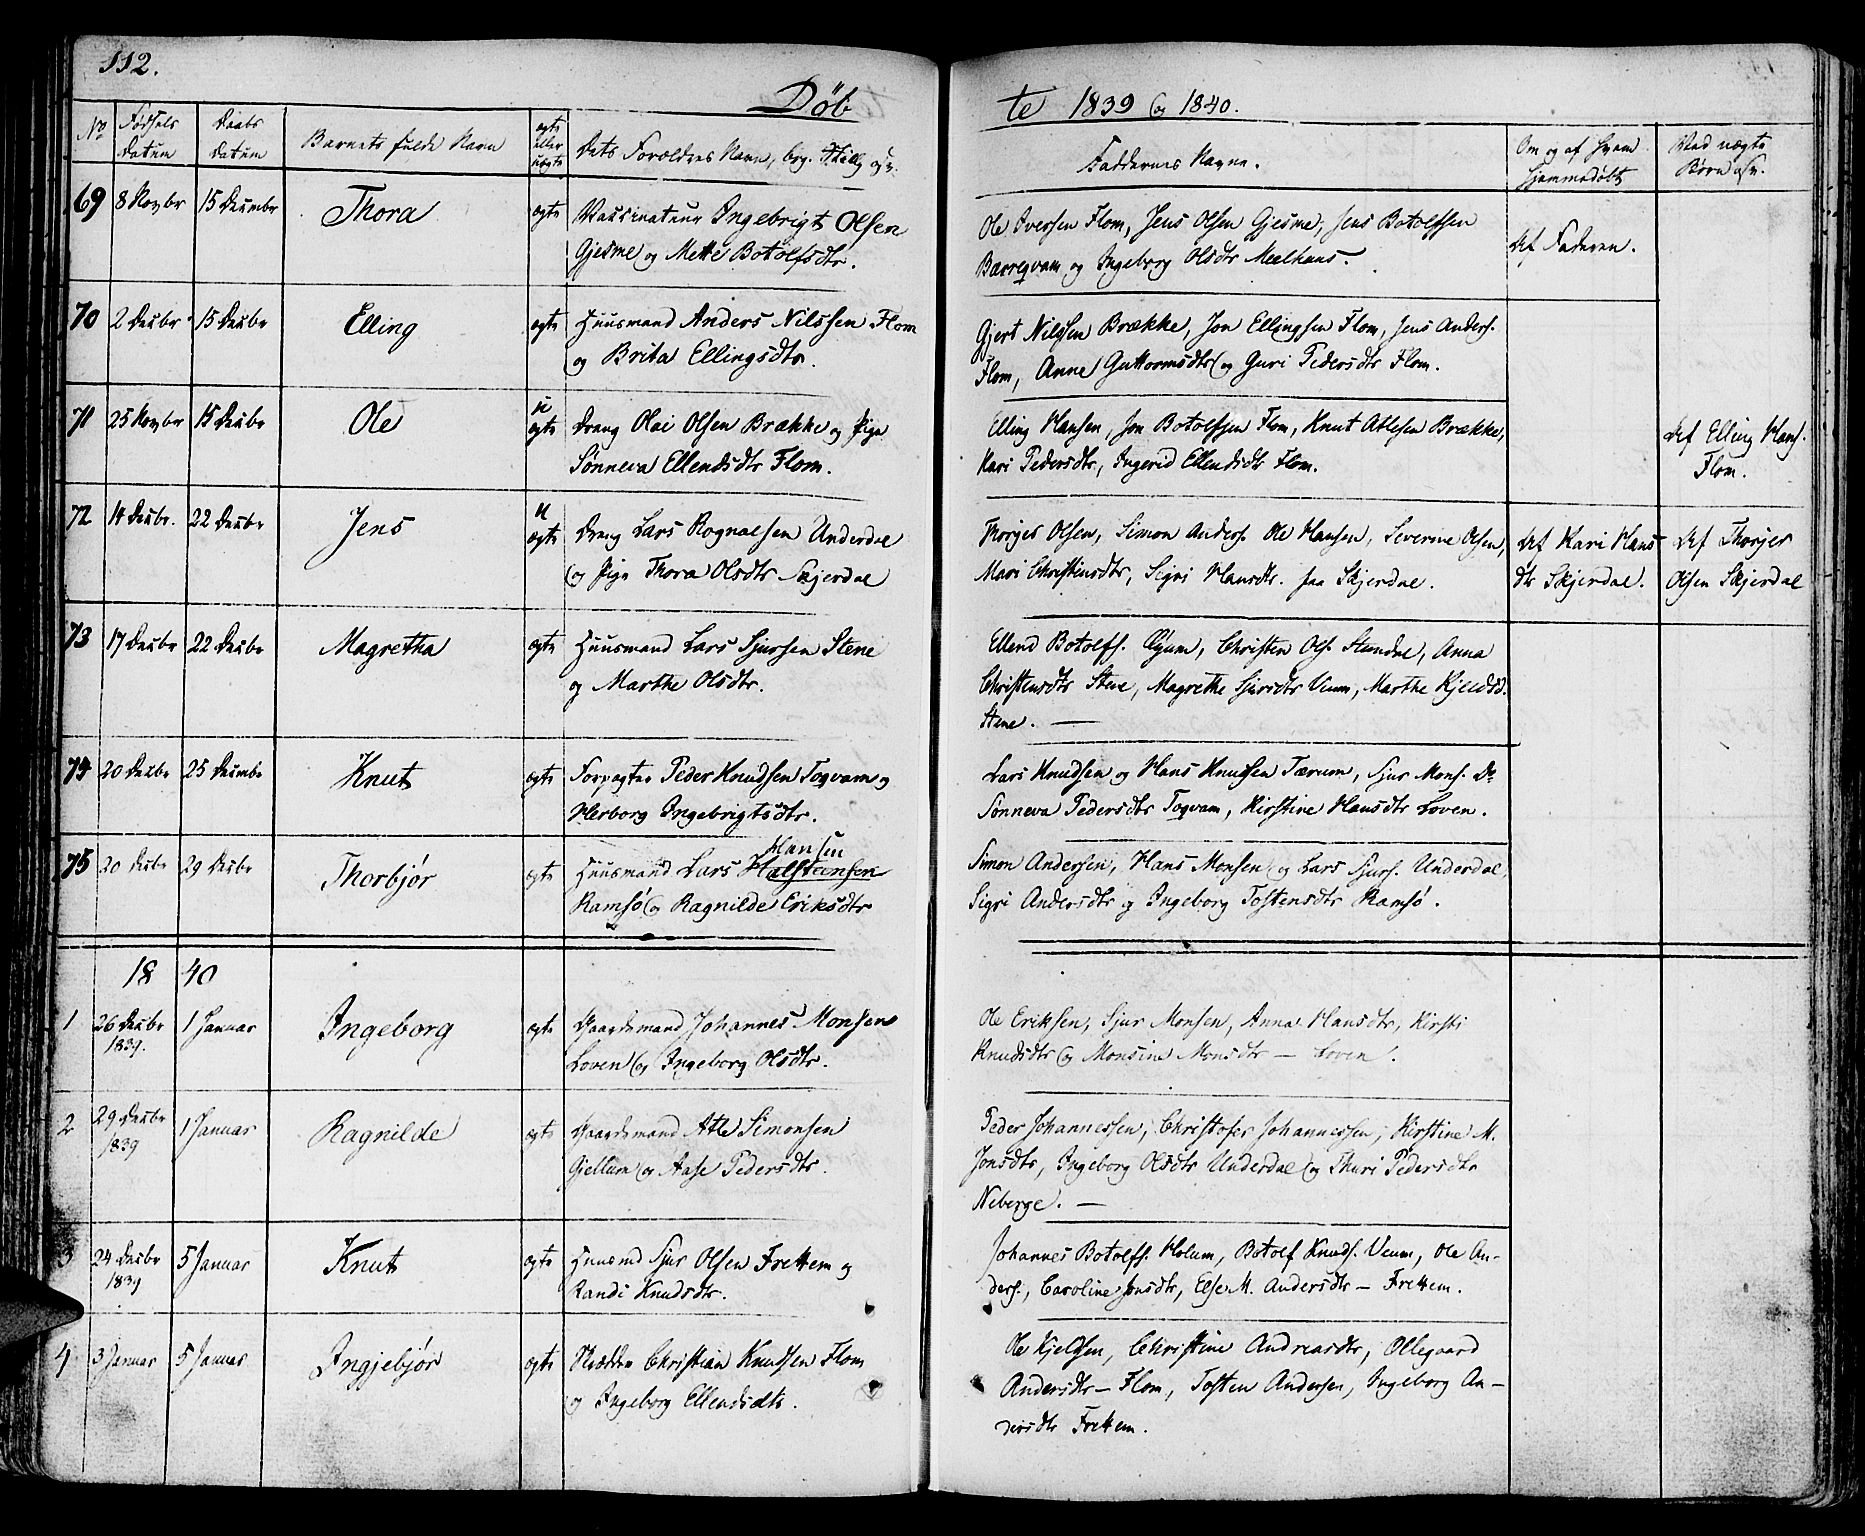 112.
Døb
te 1839 og 1840.
No Fødsels Datum Daabs Datum Barnets fulde Navn ægte eller uægte Dets Forældres Navn, Faddernes Navne. Om og af hvem hjemmedøbt Ved uægte Børn
69 8 Novbr 15 Decembr Thora ægte Vaccinateur Ingebrigt Olsen
Gjesme og Mette Botolfsdtr.
Ole Iversen Flom, Jens Olsen Gjesme, Jens Botolfsen
Bæreqvam og Ingeborg Olsdtr Meelhuus. Af Faderen.
70 2 Decbr 15 Decbr Elling ægte Huusmand Anders Nilssen Flom
og Brita Ellingsdtr.
Gjert Nilssen Brække, Jon Ellingsen Flom, Jens Anders.
Flom, Anne Guttormsdtr og Guri Pedersdtr Flom.
71 25 Novbr 15 Decbr Ole uægte Dreng Olai Olsen Brække og Pige
Sønneva Ellendsdtr Flom.
Elling Hansen, Jon Botolfsen Flom, Knut Atlesen Brække,
Kari Pedersdtr, Ingerid Ellendsdtr Flom.
Af Elling Hans.
Flom.
72 14 Decbr. 22 Decbr Jens uægte Dreng Lars Rognalsen Underdal
og Pige Thora Olsdtr Skjerdal
Thorger Olsen, Simon Anders. Ole Hansen, Severine Olsen,
Mari Christensdtr, Sigri Hansdtr. paa Skjerdal.
Af Kari Hans-
dtr Skjerdal.
Af Thorger
Olsen Skjerdal
73 17 Decbr 22 Decbr Magretha ægte Huusmand Lars Sjursen Stene
og Marthe Olsdtr.
Ellend Botolfs. Øyum, Christen Ols. Stundal, Anna
Christensdtr Stene, Magrethe Sjursdtr Veum, Marthe Kjeldsd.
Stene. —
74 20 Decbr 25 Decembr Knut ægte Forpagter Peder Knudsen Toqvam og
Herborg Ingebrigtsdtr.
Lars Knudsen og Hans Knudsen Tærum, Sjur Mons. Do
Sønneva Pedersdtr Toqvam, Kirstine Hansdtr Loven.
75 20 Decbr 29 Decbr Thorbjør ægte Huusmand Lars Halstensen Hansen
Ramsø og Ragnilde Eriksdtr
Simon Andersen, Hans Monsen og Lars Sjurs. Underdal,
Sigri Andersdtr og Ingeborg Tostensdtr Ramsø.
1840
1 26 Decbr 1839. 1 Januar Ingeborg ægte Gaardsmand Johannes Monsen
Loven og Ingeborg Olsdtr.
Ole Eriksen, Sjur Monsen, Anna Hansdtr, Kirsti
Knudsdtr og Monsine Monsdtr — Loven.
2 29 Decbr 1839 1 Januar Ragnilde ægte Gaardsmand Atle Simonsen
Gjellum og Aase Pedersdtr.
Peder Johannessen, Christofer Johannessen, Kirstine M.
Jonsdtr, Ingeborg Olsdtr Underdal og Thuri Pedersdtr
Neberge. —
3 24 Decbr 1839 5 Januar Knut ægte Huusmd Sjur Olsen Frettem og
Randi Knudsdtr.
Johannes Botolfs. Holum, Botolf Knuds. Veum, Ole An-
ders., Caroline Jonsdtr, Else M. Andersdtr — Frettem.
4 3 Januar 5 Januar Ingjebjør ægte Skrædder Christian Knudsen Flom
og Ingeborg Ellendsdtr.
Ole Kjelsen, Christine Andreasdtr, Ollegaard
Andersdtr — Flom, Tosten Andersen, Ingeborg An-
dersdtr Frettem.